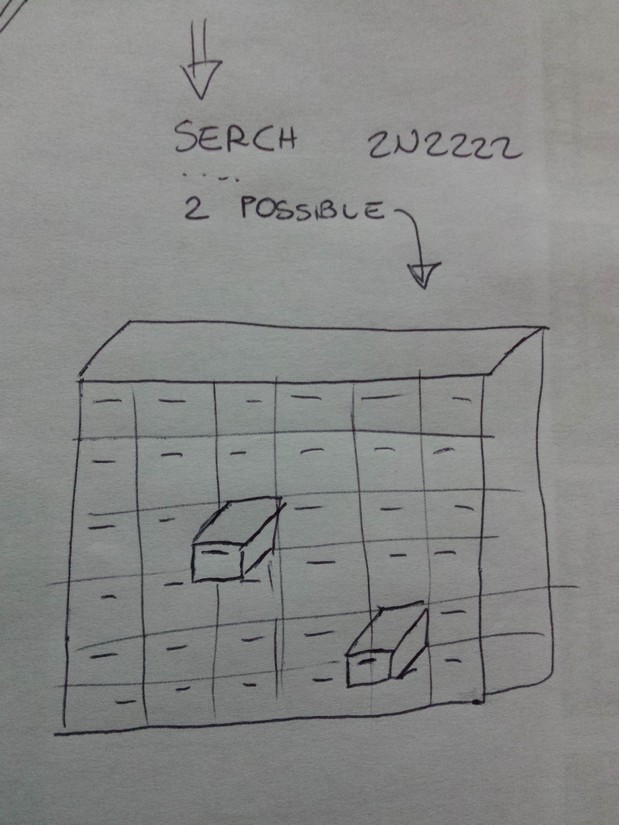 SERCH 2N2222
....
2 POSSIBLE